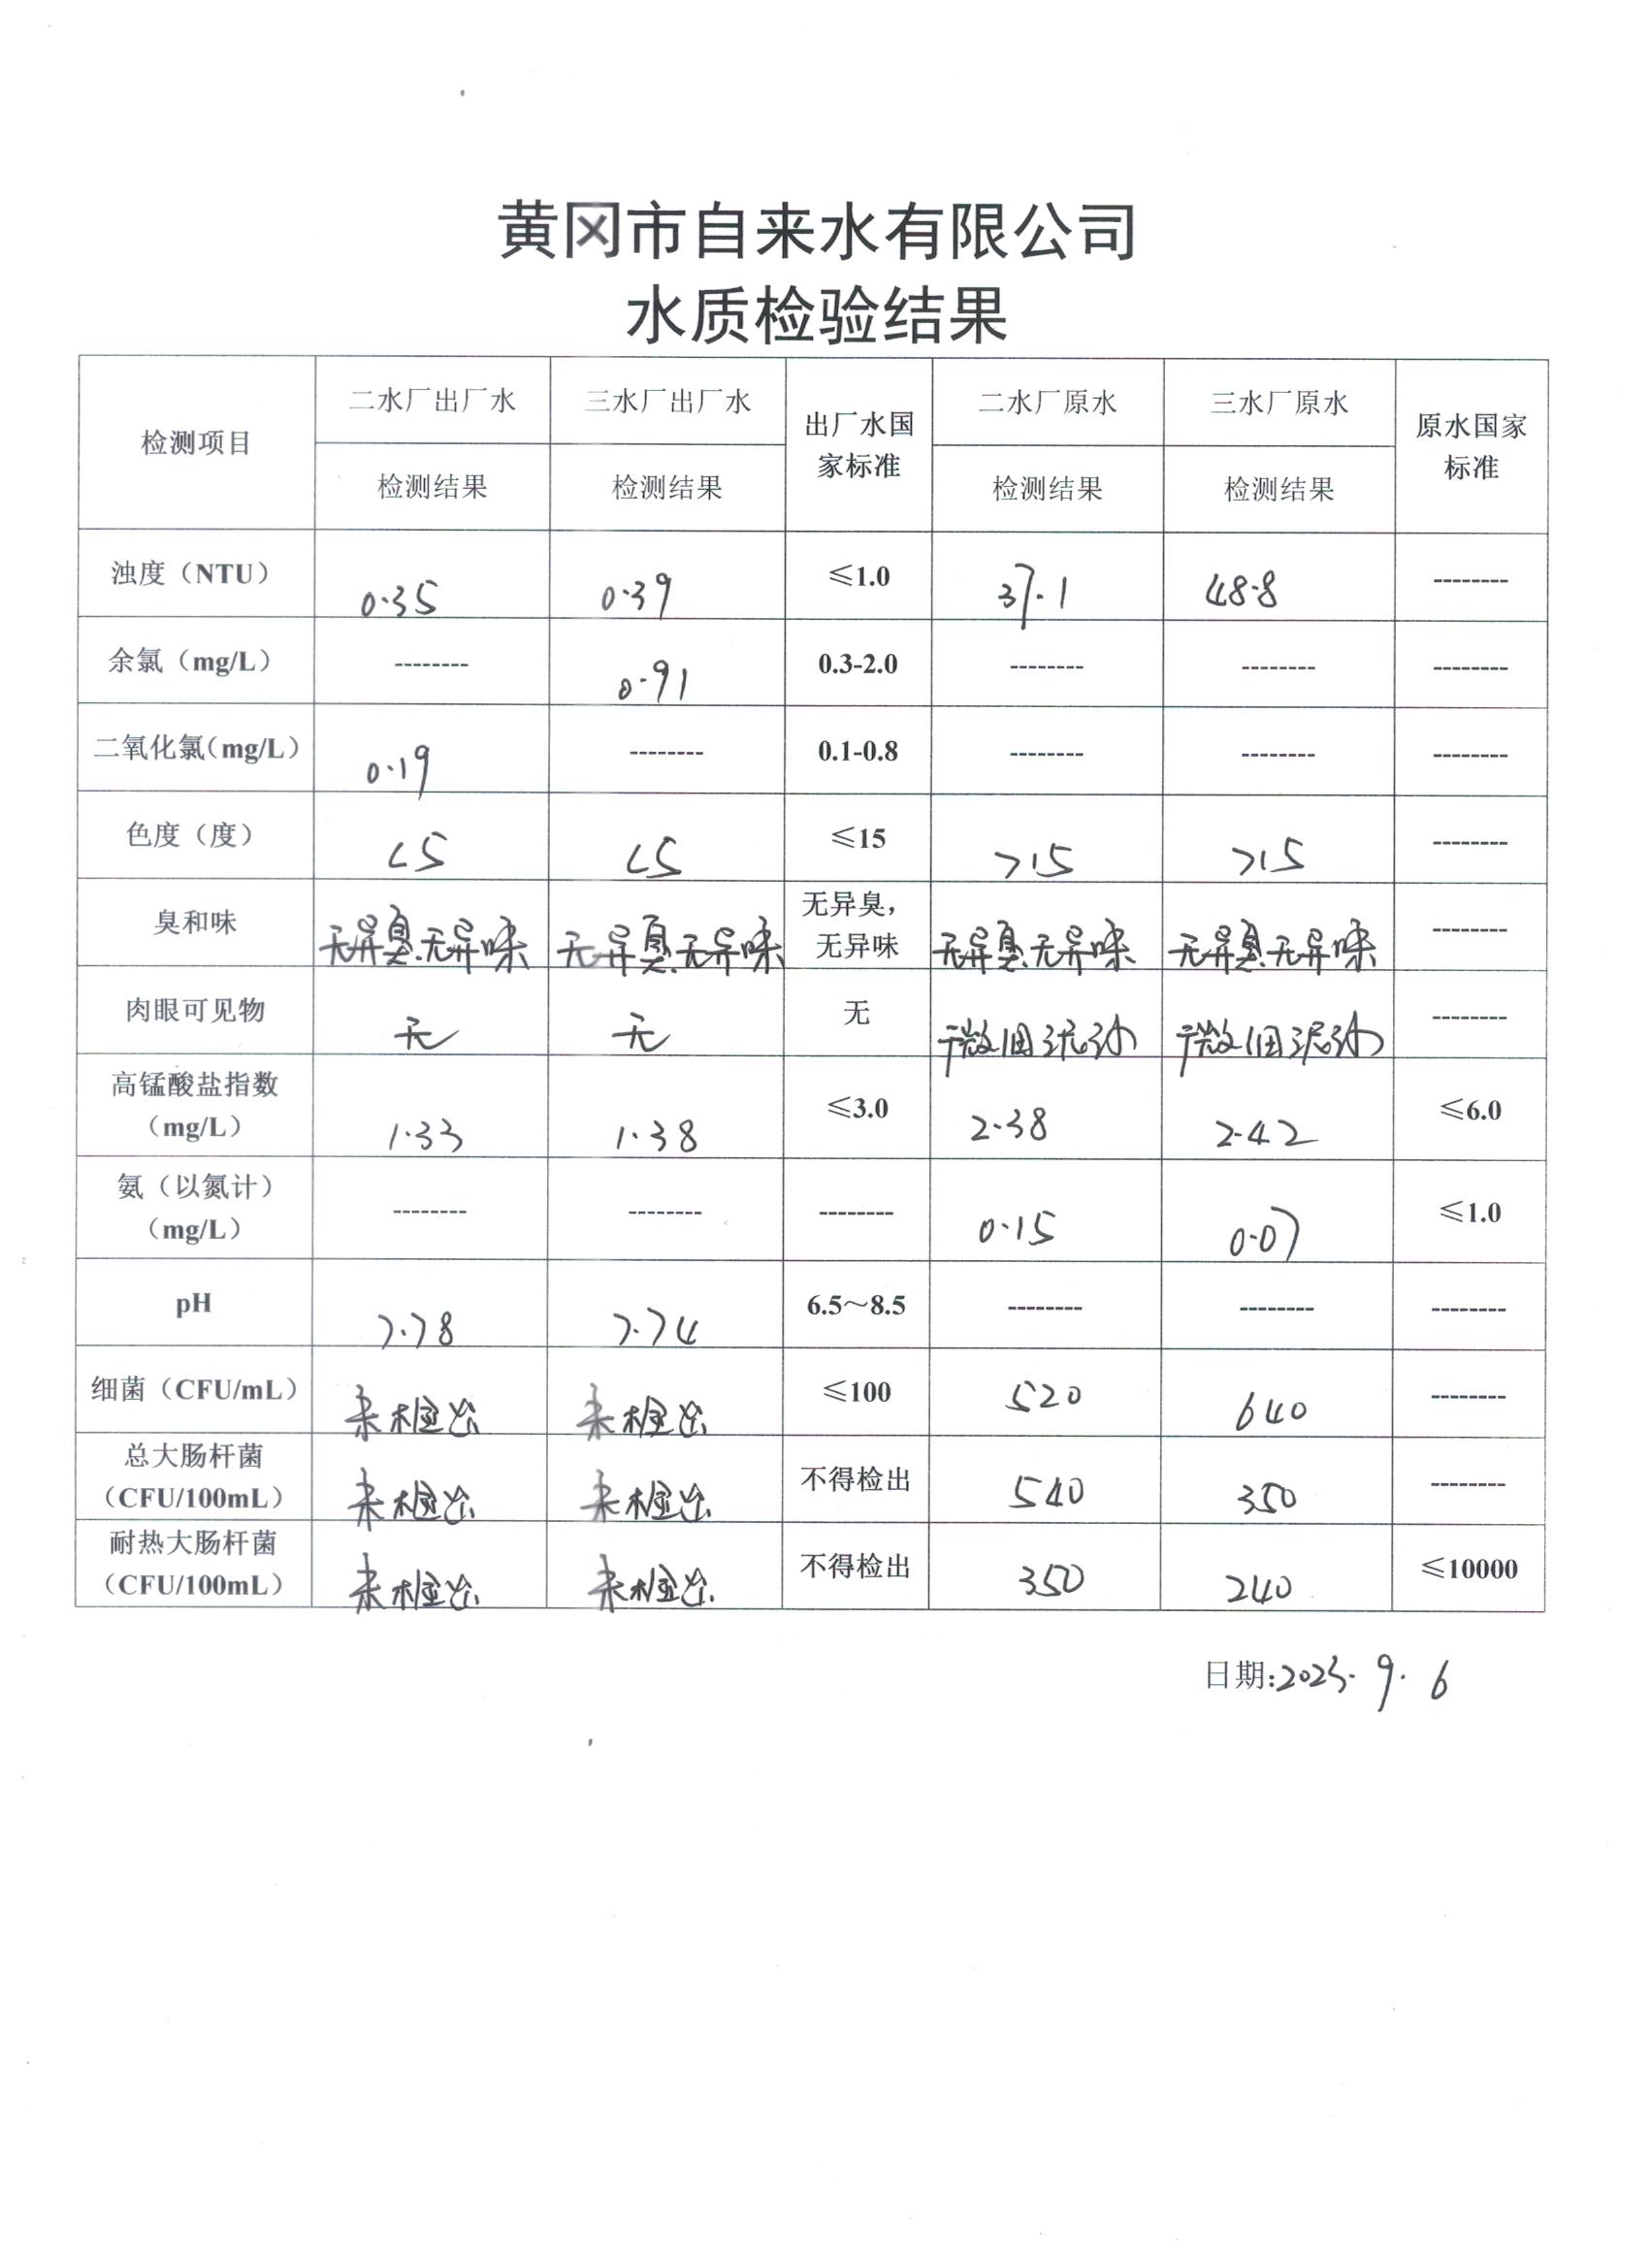 黄冈市自来水有限公司
水质检验结果
检测项目 二水厂出厂水 三水厂出厂水 出厂水国家标准 二水厂原水 三水厂原水 原水国家标准
检测结果 检测结果 检测结果 检测结果
浊度（NTU） 0.35 0.39 ≤1.0 37.1 48.8 --------
余氯（mg/L） -------- 0.91 0.3-2.0 -------- -------- --------
二氧化氯（mg/L） 0.19 -------- 0.1-0.8 -------- -------- --------
色度（度） <5 <5 ≤15 >15 >15 --------
臭和味 无异臭.无异味 无异臭.无异味 无异臭，无异味 无异臭.无异味 无异臭.无异味 --------
肉眼可见物 无 无 无 微细泥沙 微细泥沙 --------
高锰酸盐指数（mg/L） 1.33 1.38 ≤3.0 2.38 2.42 ≤6.0
氨（以氮计）（mg/L） -------- -------- -------- 0.15 0.07 ≤1.0
pH 7.78 7.74 6.5～8.5 -------- -------- --------
细菌（CFU/mL） 未检出 未检出 ≤100 520 640 --------
总大肠杆菌（CFU/100mL） 未检出 未检出 不得检出 540 350 --------
耐热大肠杆菌（CFU/100mL） 未检出 未检出 不得检出 350 240 ≤10000
日期:2023.9.6